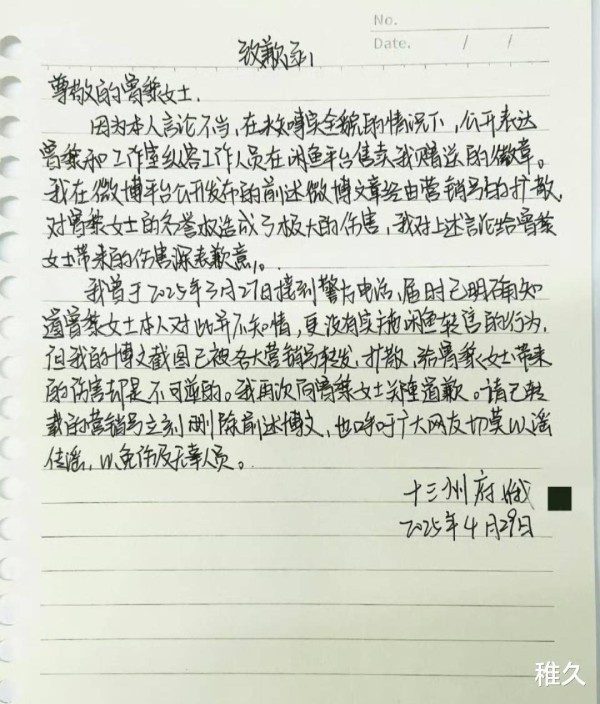 No.
Date. / /
致歉函
尊敬的曾黎女士,
因为本人言论不当,在未知晓全貌的情况下,公开表达
曾黎和工作室纵容工作人员在闲鱼平台售卖我赠送的徽章。
我在微博平台公开发布的前述微博文章经由营销号的扩散,
对曾黎女士的名誉权造成了极大的伤害,我对上述言论给曾黎
女士带来的伤害深表歉意。
我曾于2025年3月27日接到警方电话,届时已明确知
道曾黎女士本人对此并不知情,更没有实施闲鱼转售的行为,
但我的博文截图已被各大营销号转发,扩散,给曾黎女士带来
的伤害却是不可逆的。我再次向曾黎女士郑重道歉。请已转
载的营销号立刻删除前述博文,也呼吁广大网友切莫以谣
传谣,以免伤及无辜人员。
十三州府
2025年4月29日
稚久